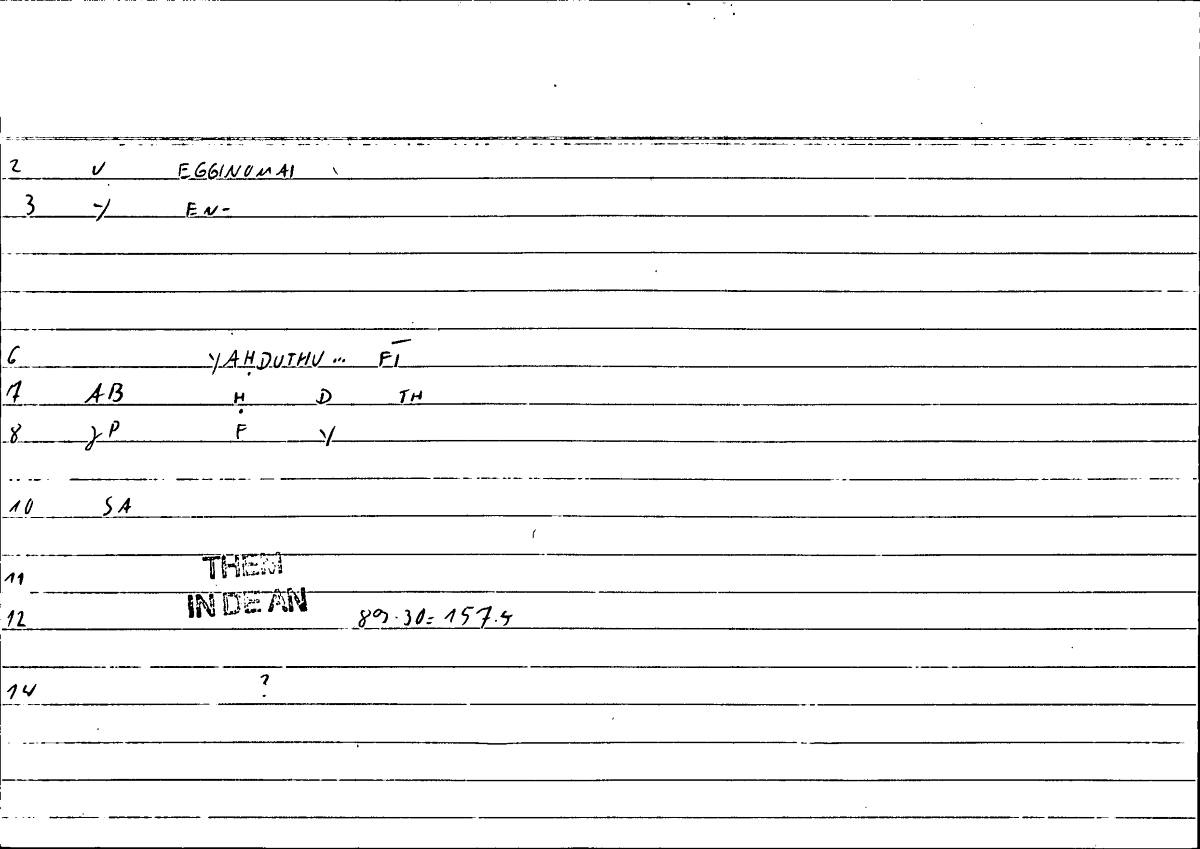 2 V EGGINOMAI
3 -y EN-
6 YAḤDUTHU ... FĪ
7 AB Ḥ D TH
8 γP F Y
10 SA
11 THEM
12 IN DE AN 89.30=157.5
14 ?